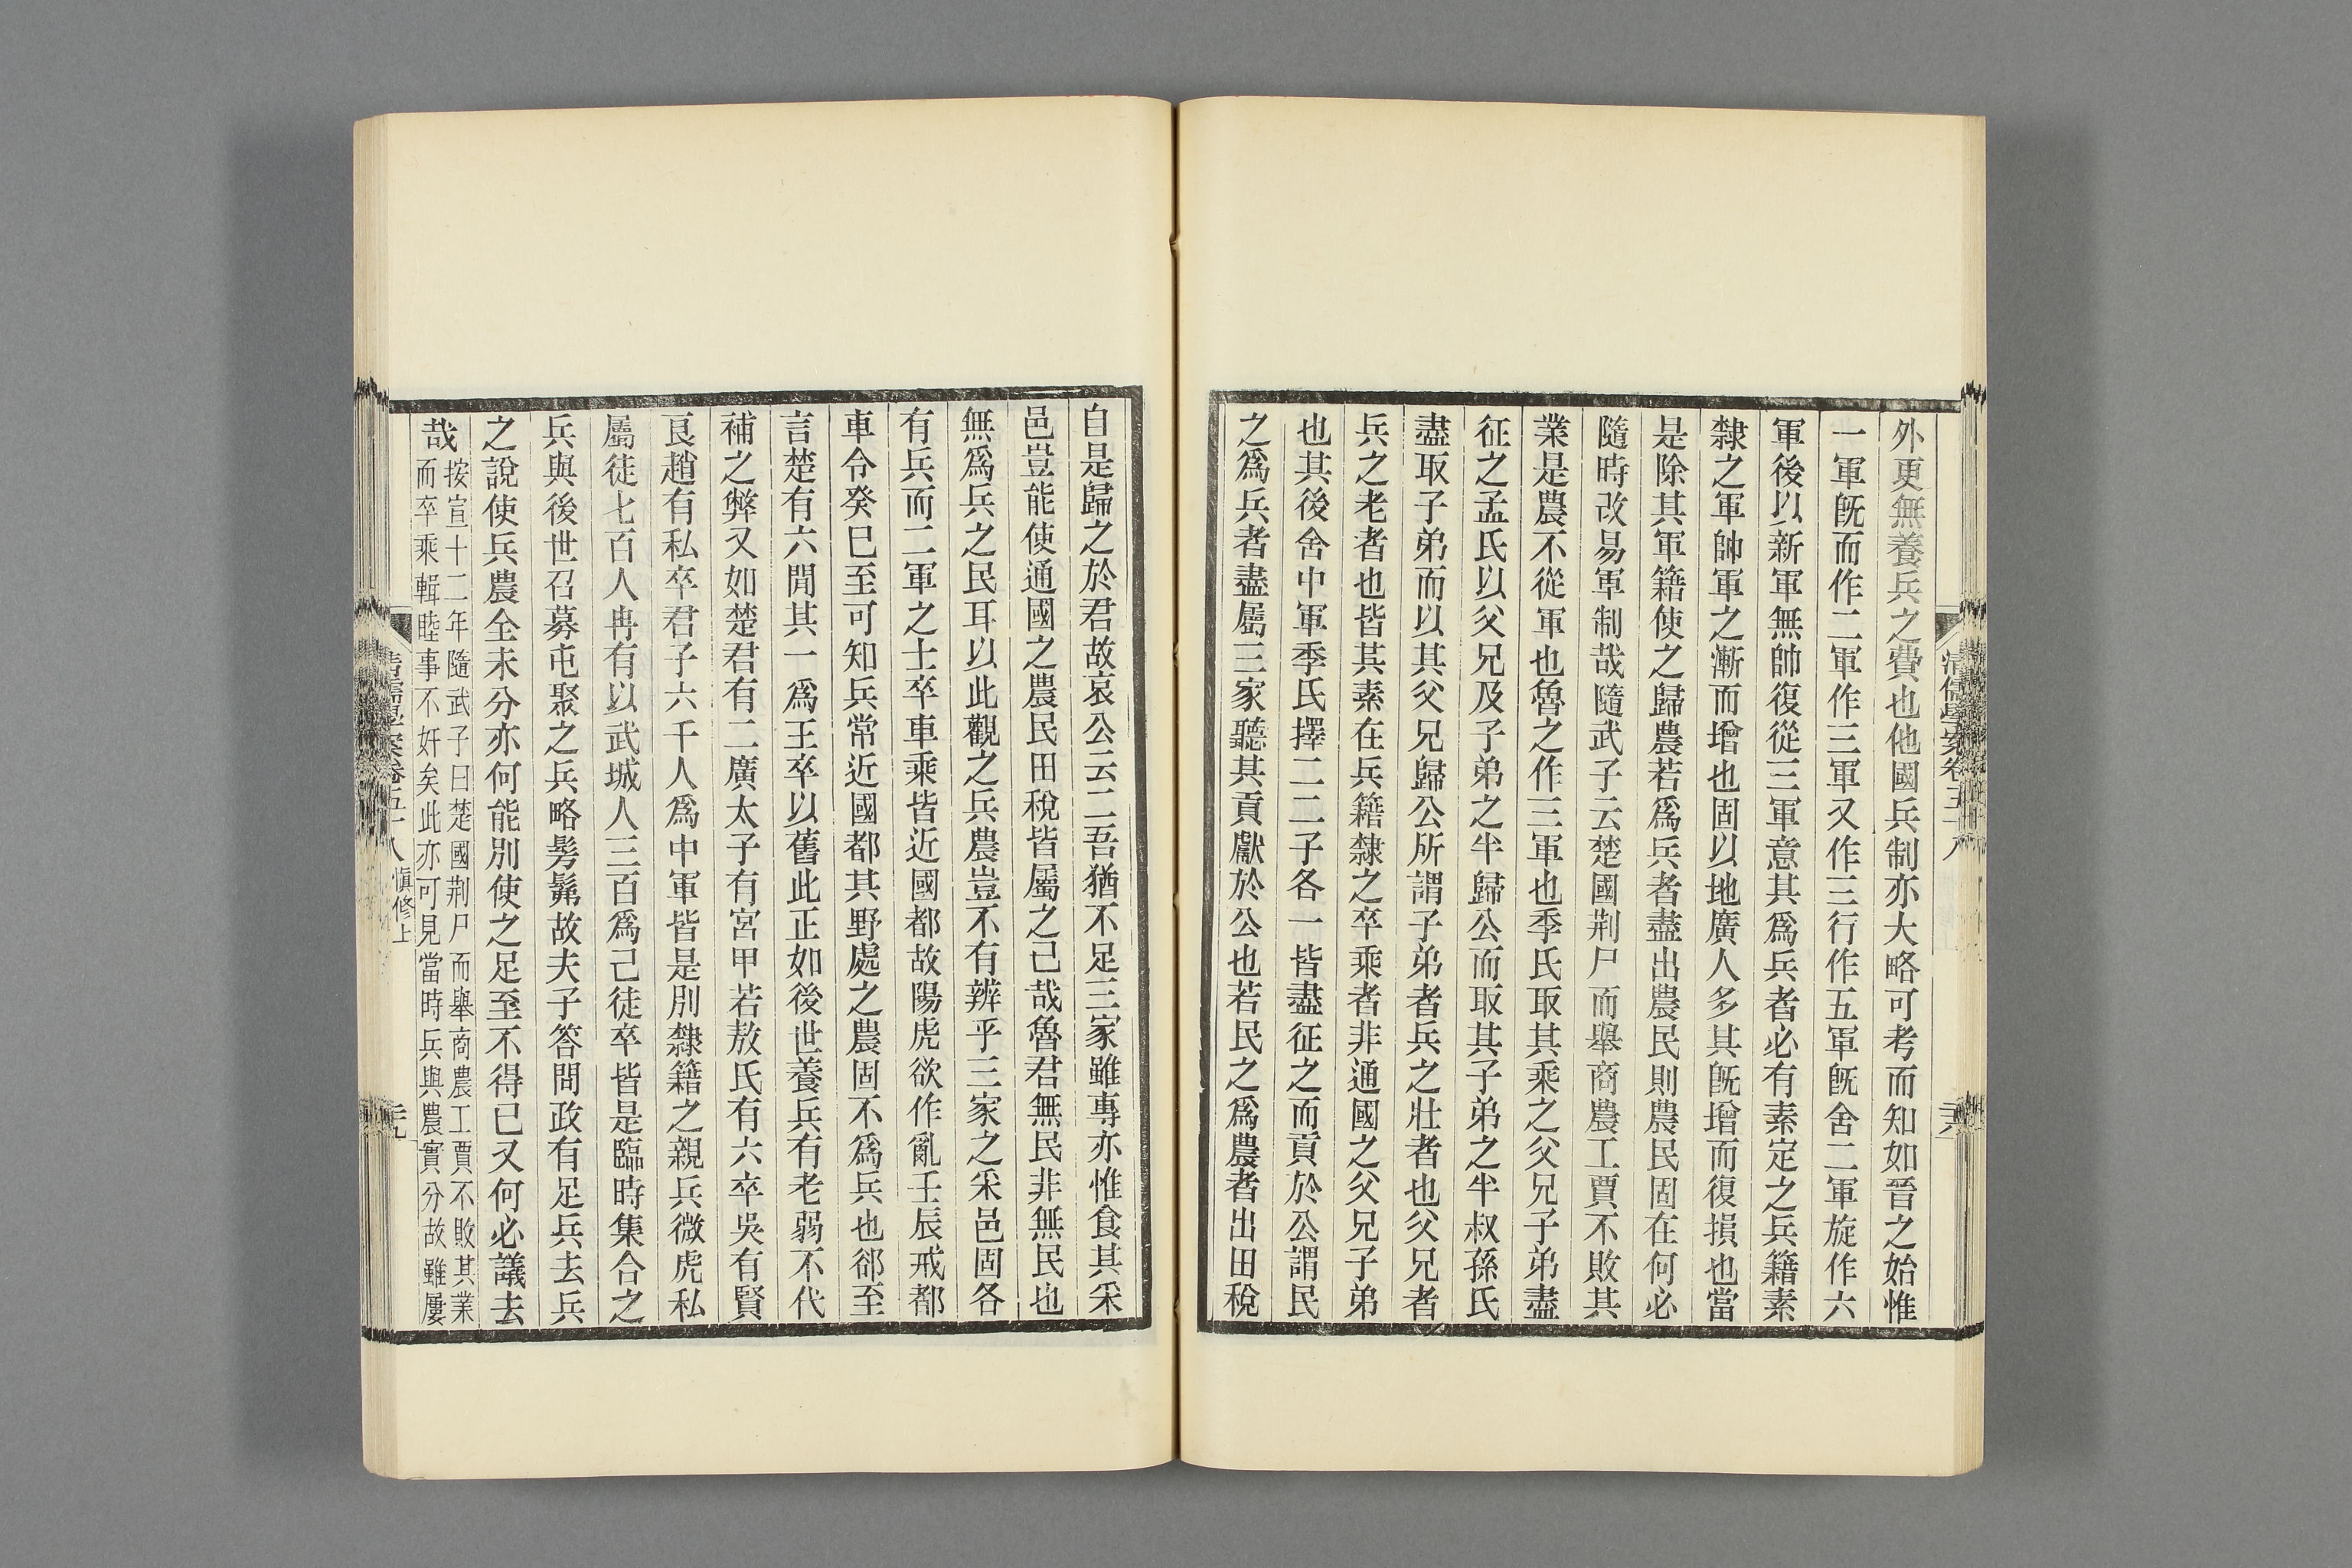 清儒學案卷五十八
外更無養兵之費也他國兵制亦大略可考而知如晉之始惟
一軍旣而作二軍作三軍又作三行作五軍旣舍二軍旋作六
軍後以新軍無帥復從三軍意其爲兵者必有素定之兵籍素
隸之軍帥軍之漸而增也固以地廣人多其旣增而復損也當
是除其軍籍使之歸農若爲兵者盡出農民則農民固在何必
隨時改易軍制哉隨武子云楚國荆尸而舉商農工賈不敗其
業是農不從軍也魯之作三軍也季氏取其乘之父兄子弟盡
征之孟氏以父兄及子弟之半歸公而取其子弟之半叔孫氏
盡取子弟而以其父兄歸公所謂子弟者兵之壯者也父兄者
兵之老者也皆其素在兵籍隸之卒乘者非通國之父兄子弟
也其後舍中軍季氏擇二二子各一皆盡征之而貢於公謂民
之爲兵者盡屬三家聽其貢獻於公也若民之爲農者出田稅
自是歸之於君故哀公云二吾猶不足三家雖專亦惟食其采
邑豈能使通國之農民田稅皆屬之己哉魯君無民非無民也
無爲兵之民耳以此觀之兵農豈不有辨乎三家之采邑固各
有兵而二軍之士卒車乘皆近國都故陽虎欲作亂壬辰戒都
車令癸巳至可知兵常近國都其野處之農固不爲兵也郤至
言楚有六閒其一爲王卒以舊此正如後世養兵有老弱不代
補之弊又如楚君有二廣太子有宮甲若敖氏有六卒吳有賢
良趙有私卒君子六千人爲中軍皆是別隸籍之親兵微虎私
屬徒七百人冉有以武城人三百爲己徒卒皆是臨時集合之
兵與後世召募屯聚之兵略髣髴故夫子答問政有足兵去兵
之說使兵農全未分亦何能別使之足至不得已又何必議去
哉
按宣十二年隨武子曰楚國荆尸而舉商農工賈不敗其業
而卒乘輯睦事不奸矣此亦可見當時兵與農實分故雖屢
清儒學案卷五十八 愼修上